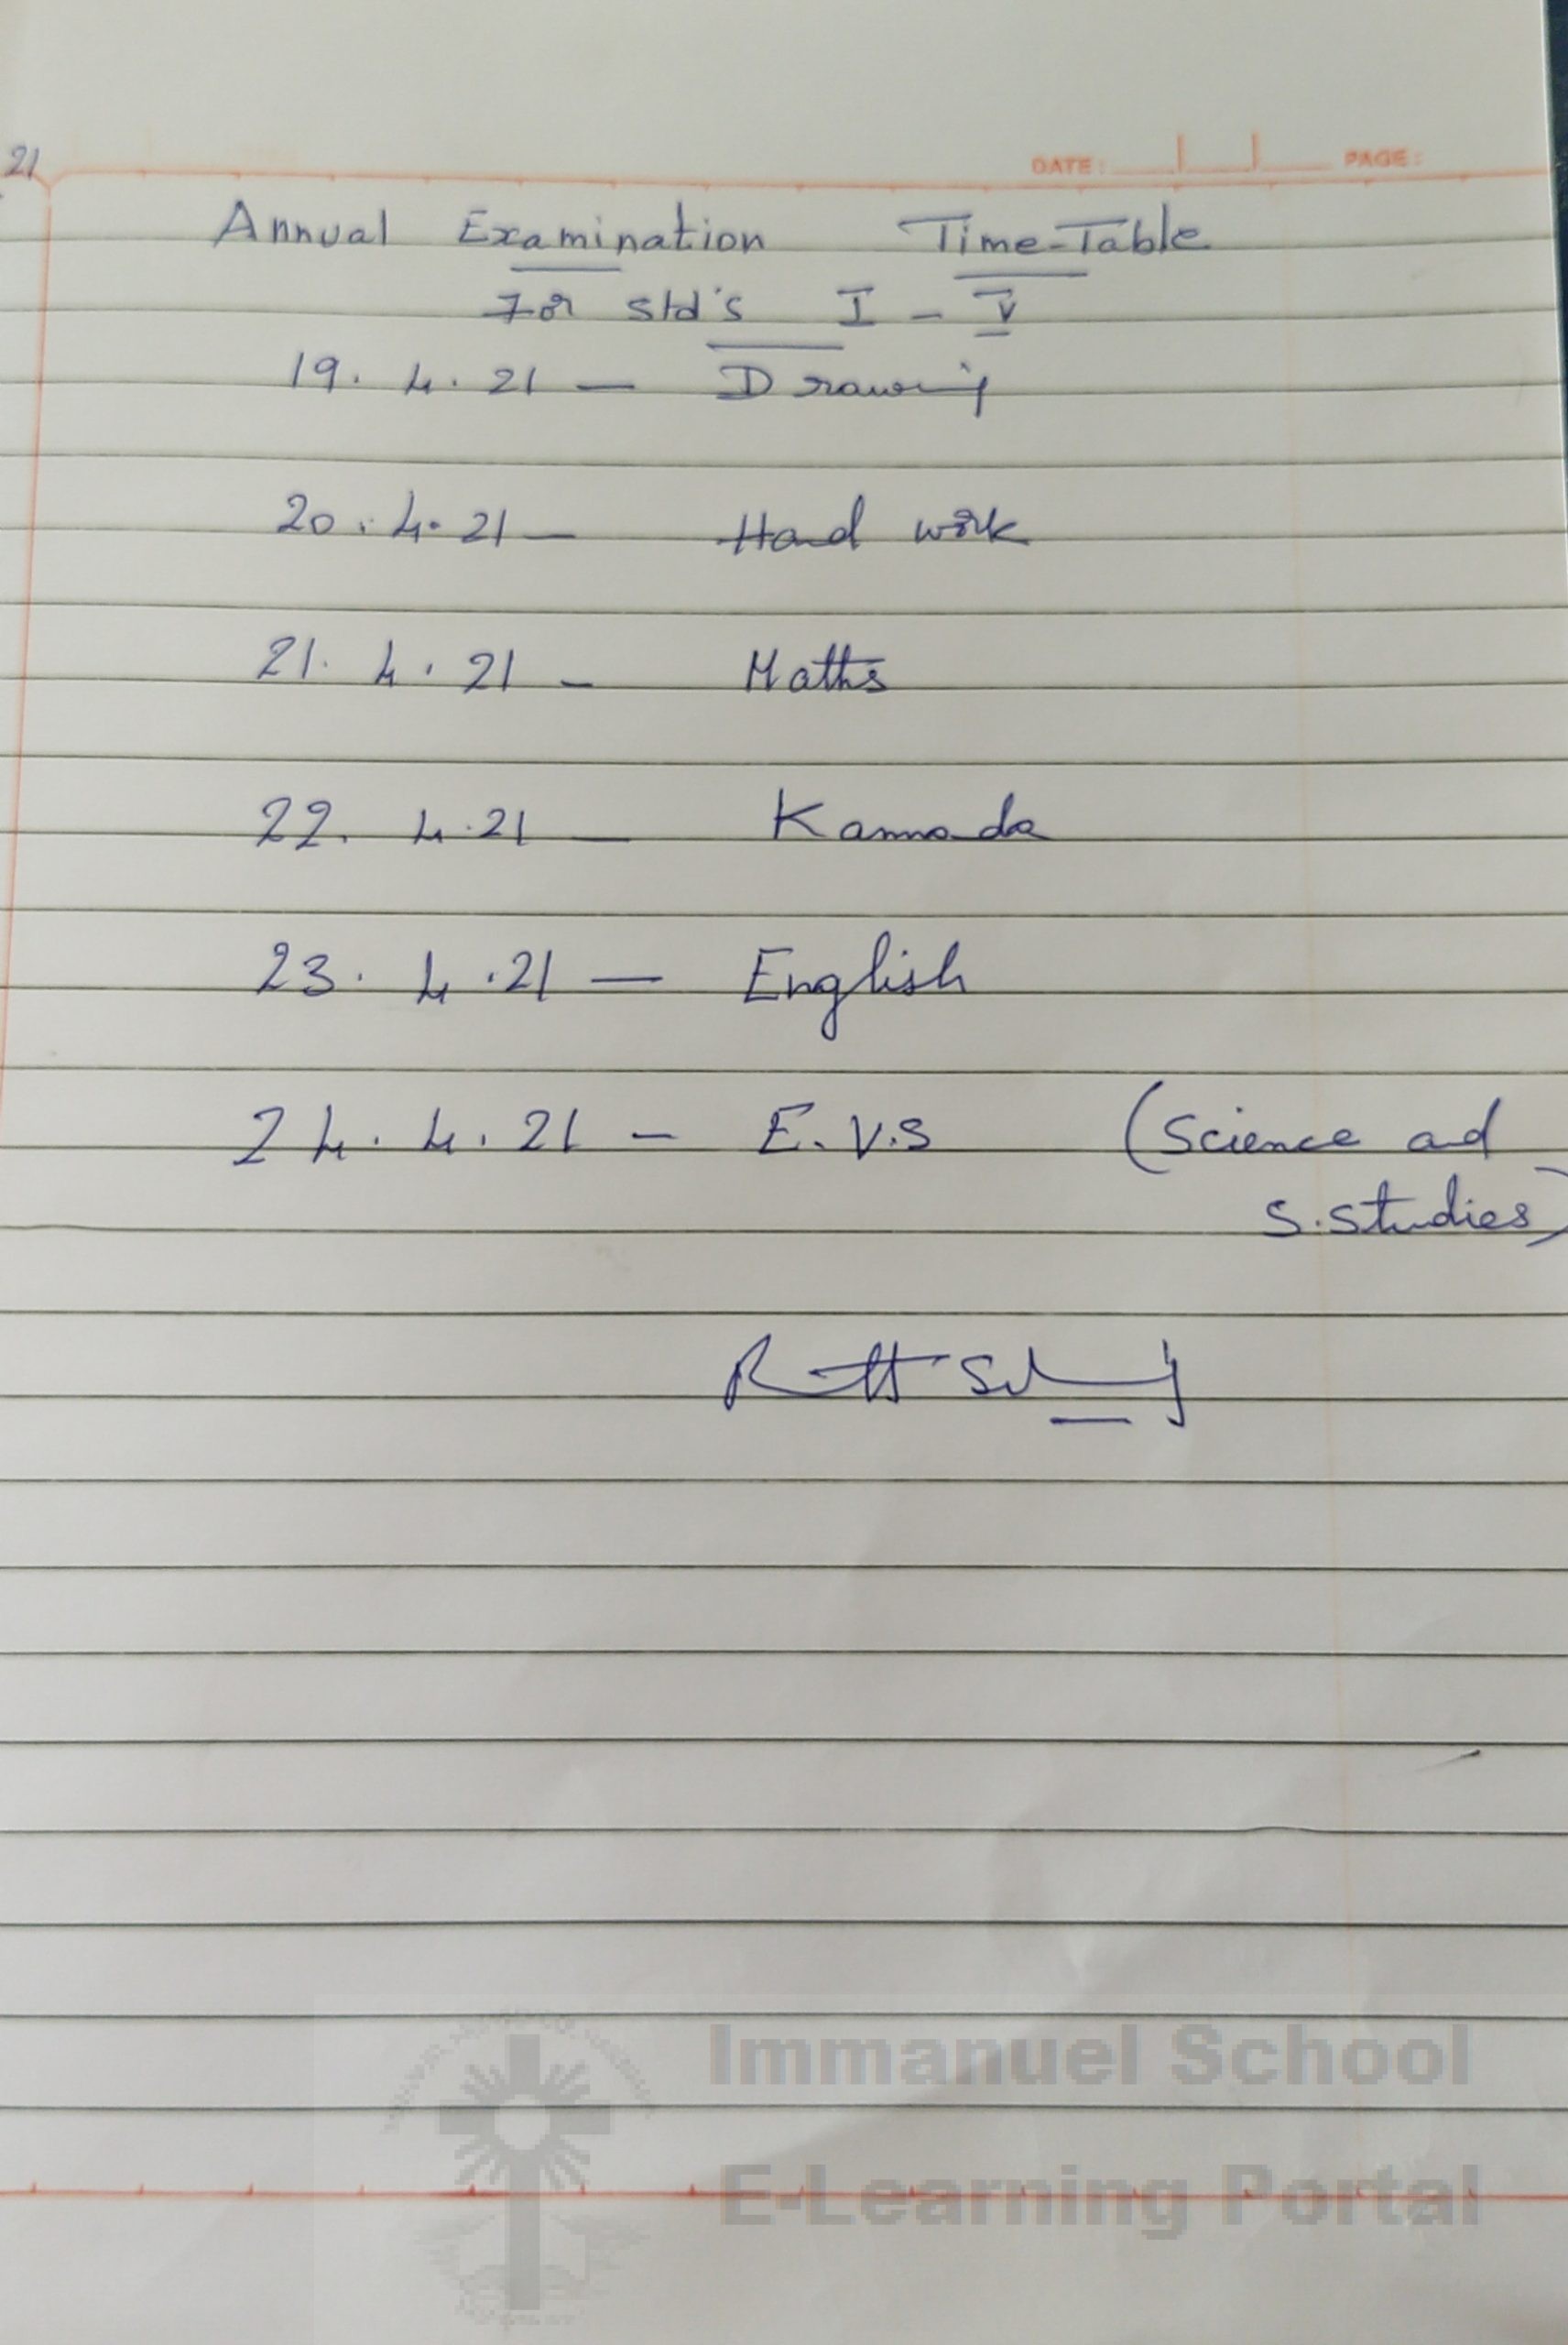 21
DATE: PAGE:
Annual Examination Time-Table
For std's I - V
19. 4. 21 — Drawing
20. 4. 21 — Hand work
21. 4. 21 - Maths
22. 4. 21 — Kannada
23. 4. 21 — English
24. 4. 21 - E.V.S (Science and
S.studies)
Immanuel School
E-Learning Portal